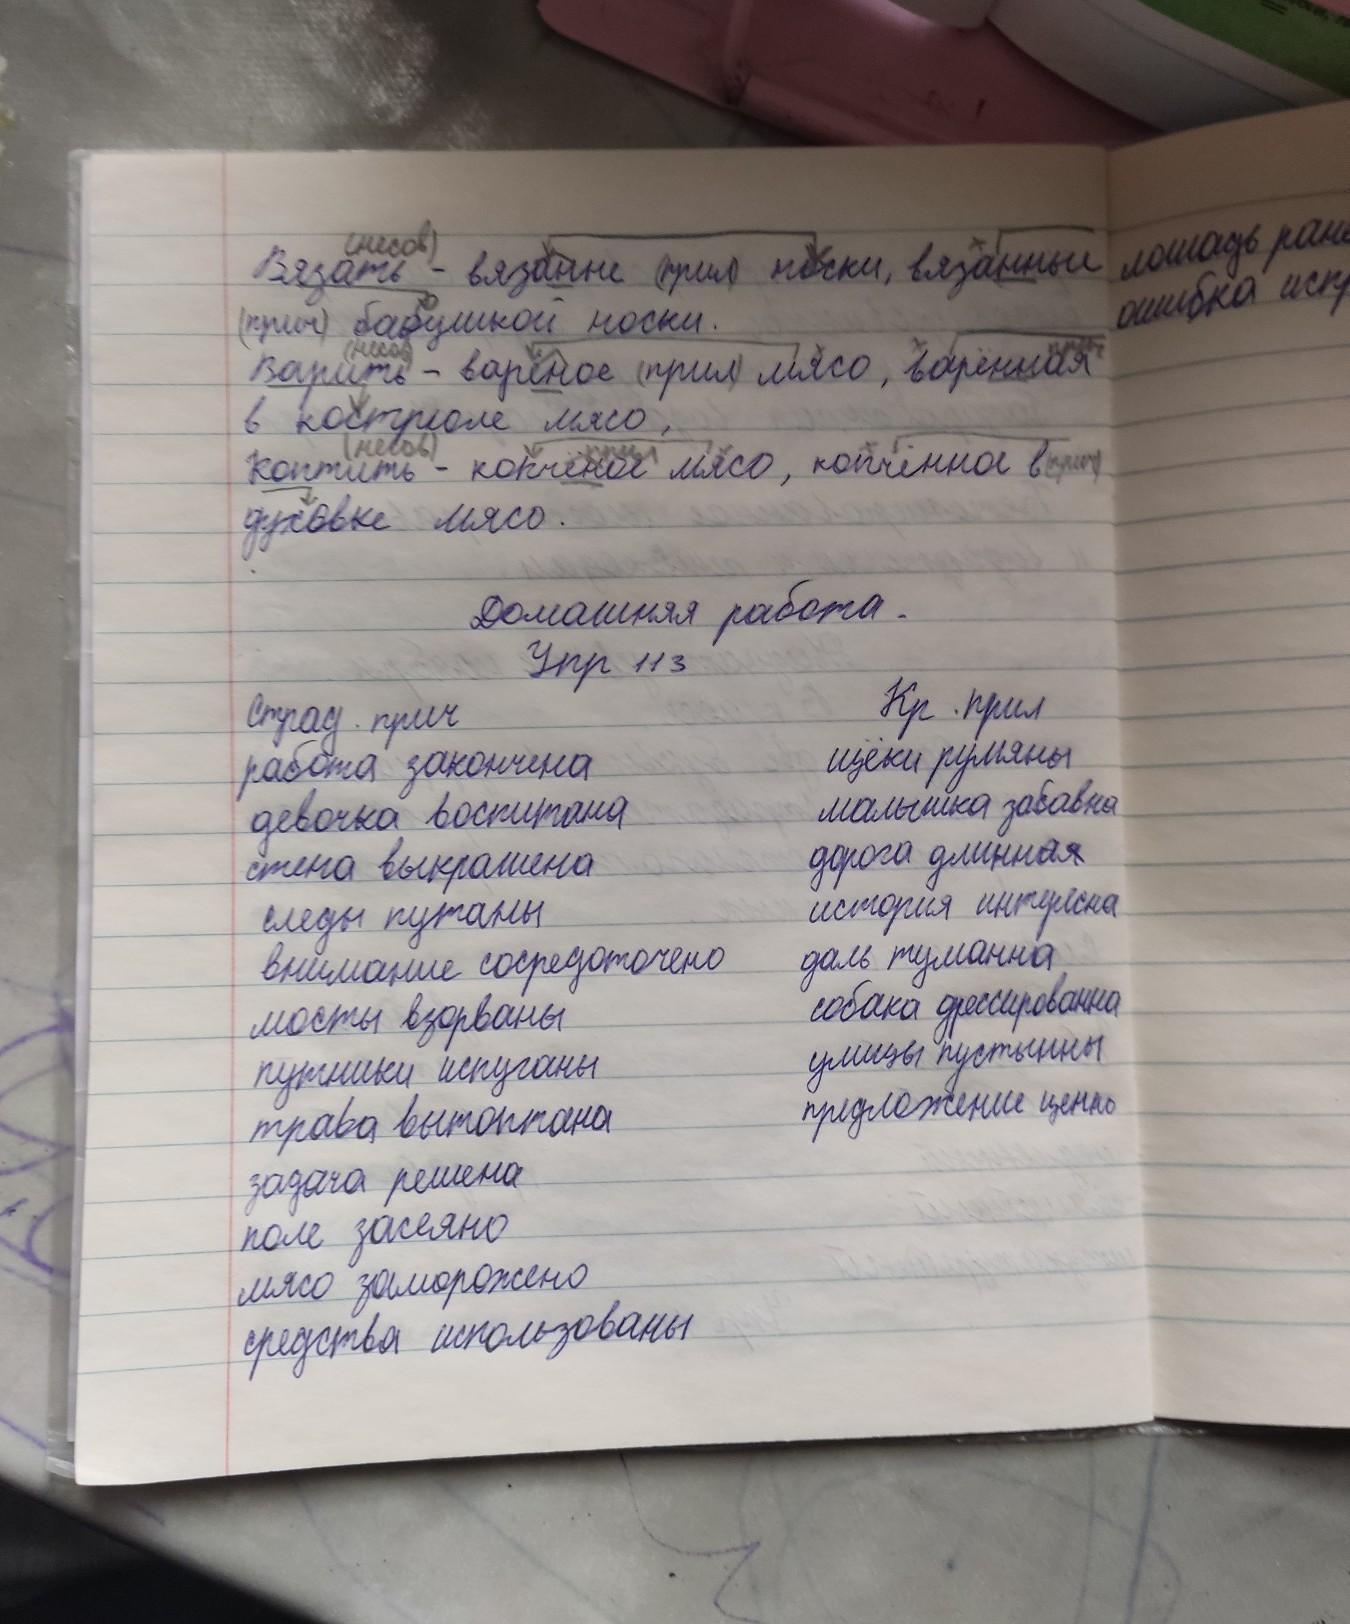 (несов)
Вязать - вязание (прил) носки, вязанный
(прич) бабушкой носки.
(несов)
Варить - варёное (прил) мясо, варённая
в кострюле мясо,
(несов) прил
Коптить - копчёное мясо, копчённое в (прич)
духовке мясо.
Домашняя работа.
Упр 113
Страд. прич Кр. прил
работа закончена щёки румяны
девочка воспитана малышка забавна
стена выкрашена дорога длинная
следы путаны история интересна
внимание сосредоточено даль туманна
мосты взорваны собака дрессированна
путники испуганы улицы пустынны
трава вытоптана предложение ценно
задача решена
поле засеяно
мясо заморожено
средства использованы
лошадь ране
ошибка испр